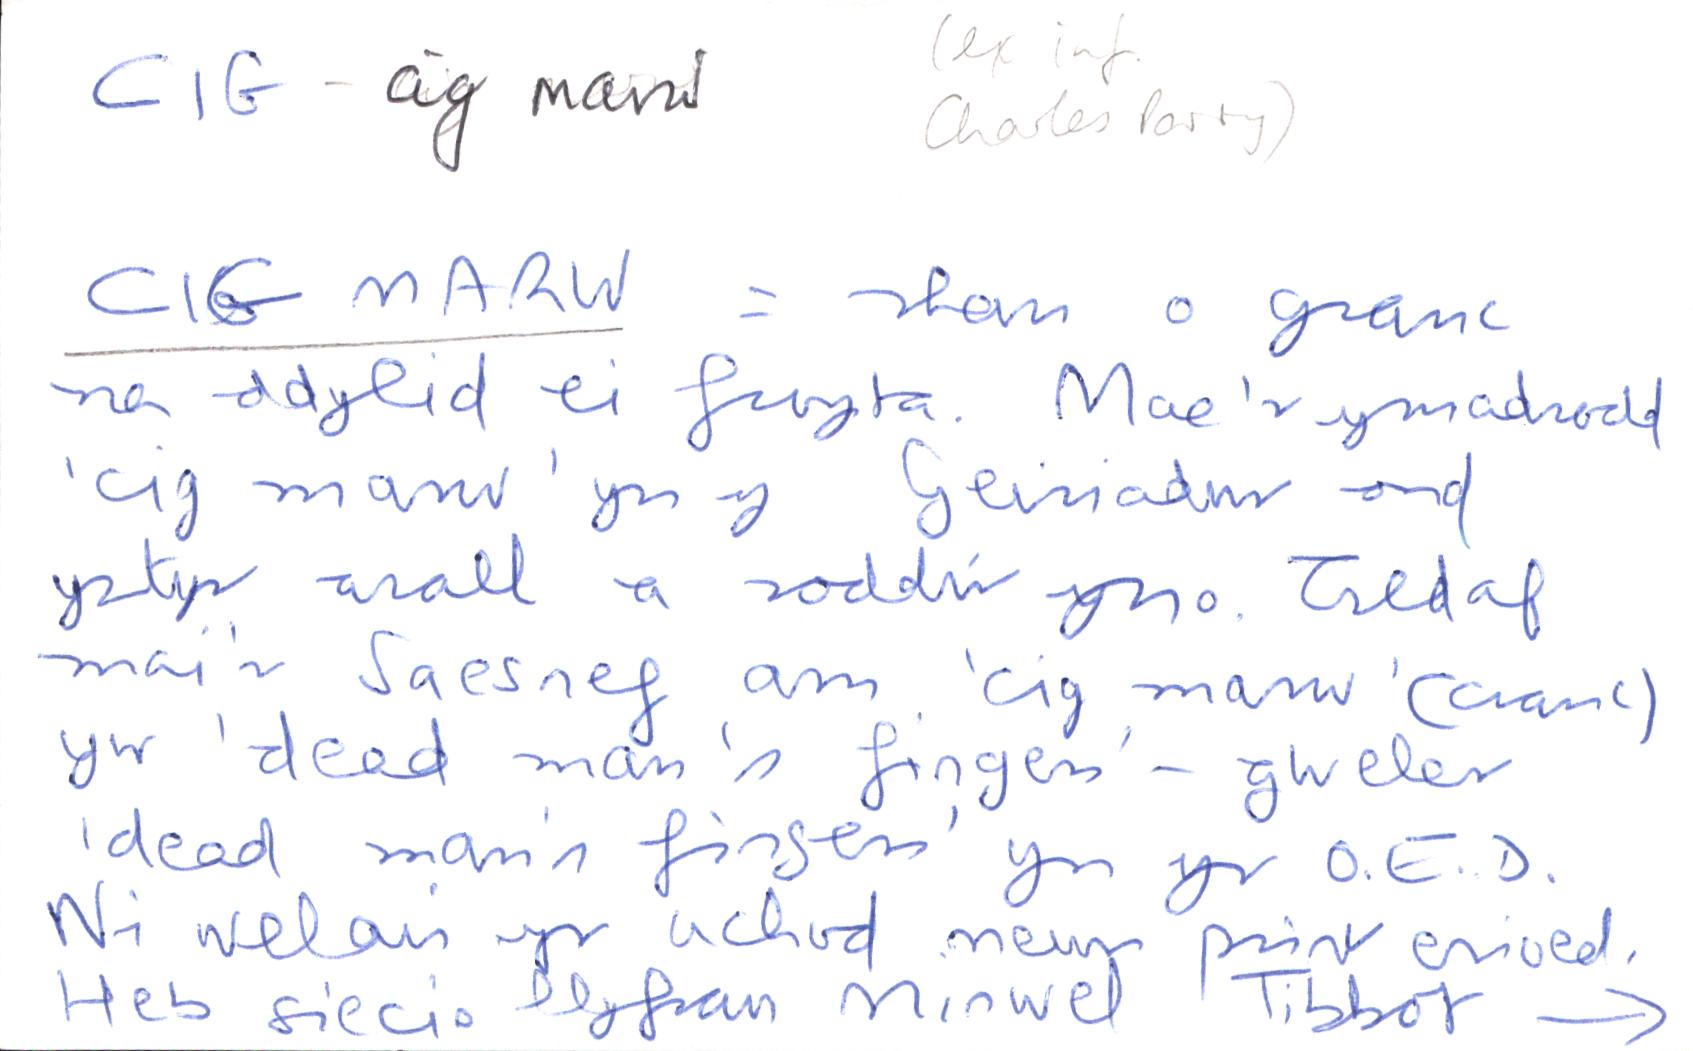 CIG - cig marw
(ex inf.
Charles Parry)
CIG MARW = rhan o granc
na ddylid ei fwyta. Mae'r ymadrodd
'cig marw' yn y Geiriadur ond
ystyr arall a roddir yno. Credaf
mai'r Saesneg am 'cig marw' (cranc)
yw 'dead man's fingers' - gweler
'dead man's fingers' yn yr O.E.D.
Ni welais yr uchod mewn print erioed.
Heb siecio llyfrau Minwel Tibbot →